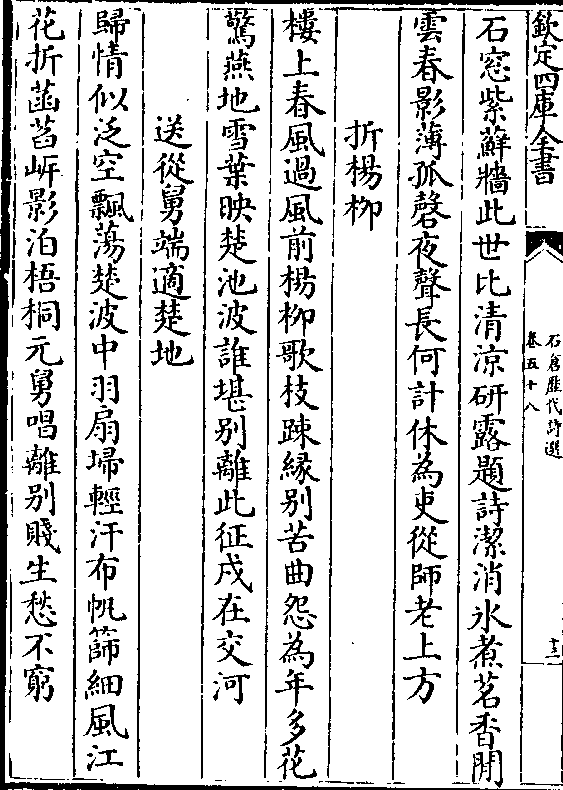 欽定四庫全書
石倉歷代詩選
卷五十八
十三
石窓紫蘚牆此世比清涼研露題詩潔消氷煮茗香閒
雲春影薄孤磬夜聲長何計休為吏從師老上方
折楊柳
樓上春風過風前楊柳歌枝踈縁别苦曲怨為年多花
驚燕地雪葉映楚池波誰堪别離此征戍在交河
送從舅端適楚地
歸情似泛空飄蕩楚波中羽扇埽輕汗布帆篩細風江
花折菡萏岍影泊梧桐元舅唱離别賤生愁不窮